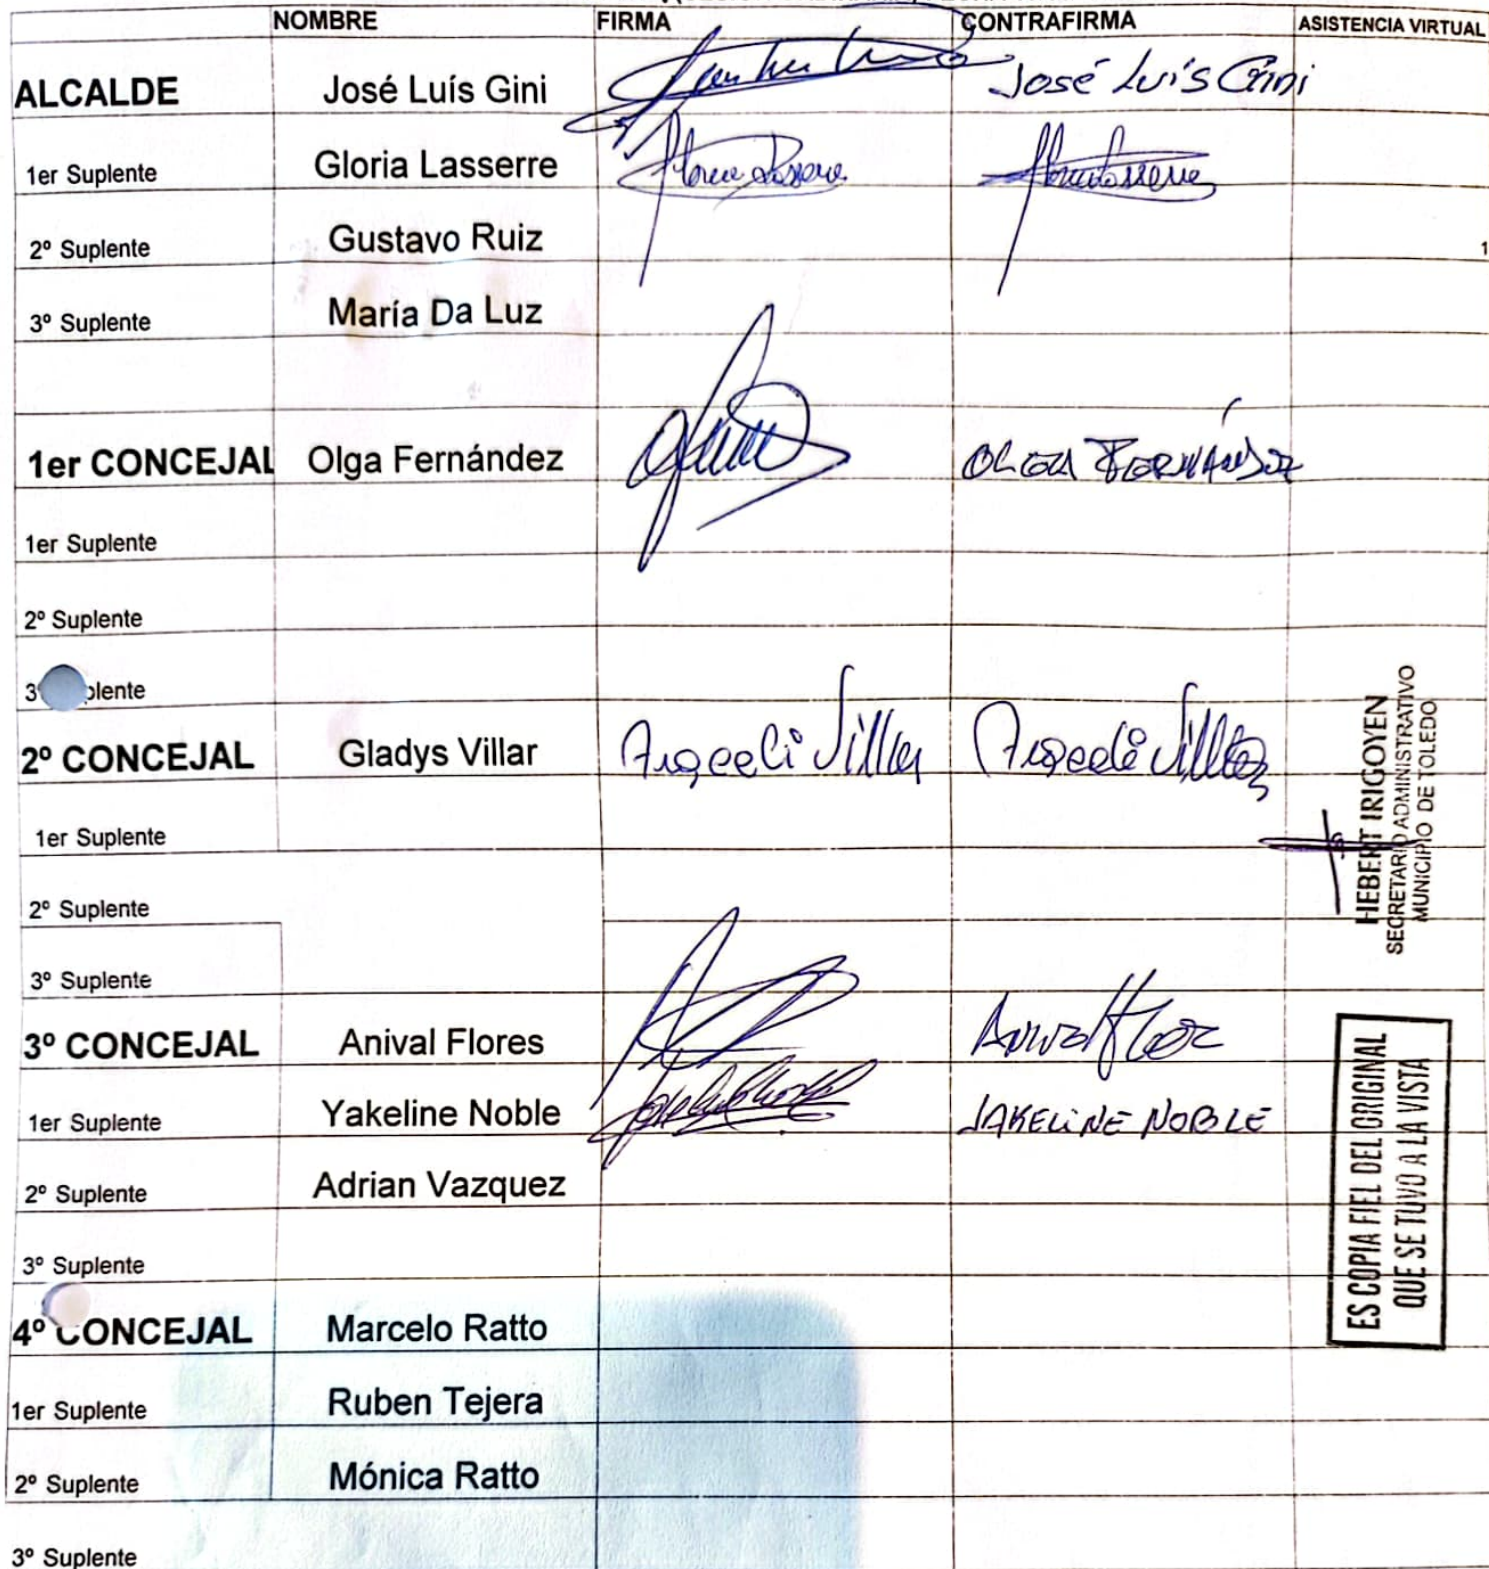 NOMBRE FIRMA CONTRAFIRMA ASISTENCIA VIRTUAL
ALCALDE José Luís Gini José Luís Gini
1er Suplente Gloria Lasserre
2º Suplente Gustavo Ruiz 1
3º Suplente María Da Luz
1er CONCEJAL Olga Fernández OLGA FERNÁNDEZ
1er Suplente
2º Suplente
3º plente
2º CONCEJAL Gladys Villar Argeeli Villar
1er Suplente
2º Suplente
3º Suplente
3º CONCEJAL Anival Flores
1er Suplente Yakeline Noble JAKELINE NOBLE
2º Suplente Adrian Vazquez
3º Suplente
4º CONCEJAL Marcelo Ratto
1er Suplente Ruben Tejera
2º Suplente Mónica Ratto
3º Suplente
HEBERT IRIGOYEN
SECRETARIO ADMINISTRATIVO
MUNICIPIO DE TOLEDO
ES COPIA FIEL DEL ORIGINAL
QUE SE TUVO A LA VISTA